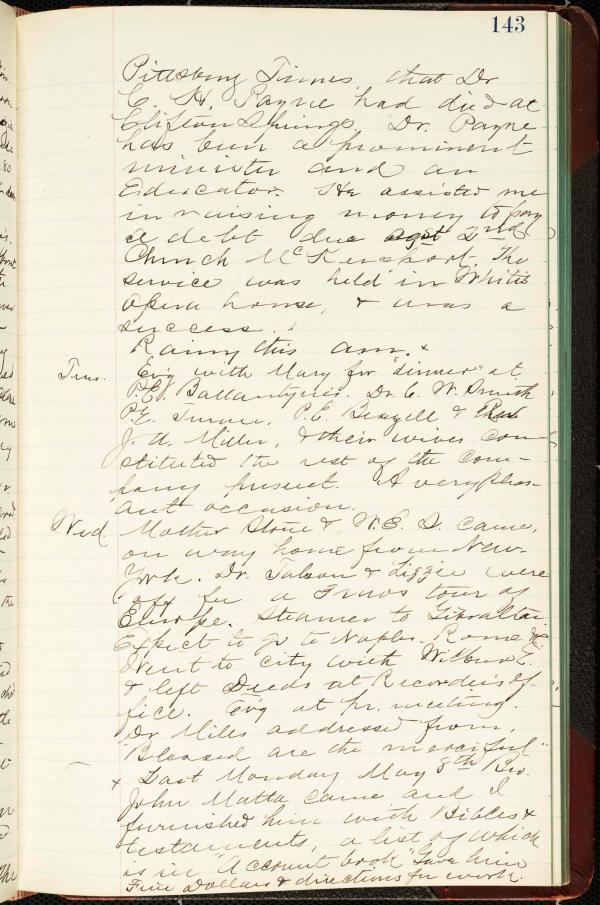 143
Pittsburg Times that Dr
C. H. Payne had died at
Clifton Springs. Dr. Payne
has been a prominent
minister and an
Educator. He assisted me
in raising money to pay
a debt due agst 2nd
Church McKeesport. The
service was held in White's
Opera house, & was a
success.
Rainy this am. x
Tues. Evg with Mary for "dinner" at
P.E. Ballantyne's. Dr. C. W. Smith
P.E. Turner, P.E. Beazell & Rev
J. H. Miller, & their wives con-
stituted the rest of the com-
pany present. A very pleas-
ant occasion.
Wed. Mother Stone & W.E. S. came,
on way home from New-
York. Dr. & Lizzie were
off for a 3 mos tour of
Europe. Steamer to Gibraltar
Expect to go to Naples. Rome &c
Went to city with Wilbur E.
& left Deeds at Recorder's Of-
fice. Evg at pr. meeting.
Dr Miles addressed from,
"Blessed are the merciful"
x Last Monday May 8th Bro.
John Matta came and I
furnished him with Bibles &
testaments, a list of which
is in "Account book" Gave him
Five Dollars & directions for work.